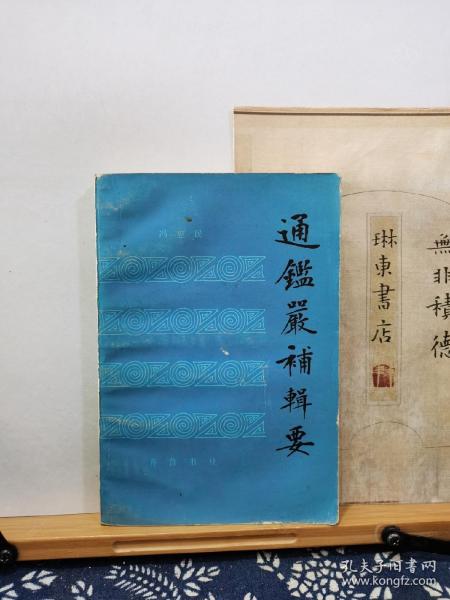 通鑑嚴補輯要
冯惠民
齐鲁书社
無非積德
琳東書店
孔夫子旧书网
www.kongfz.com